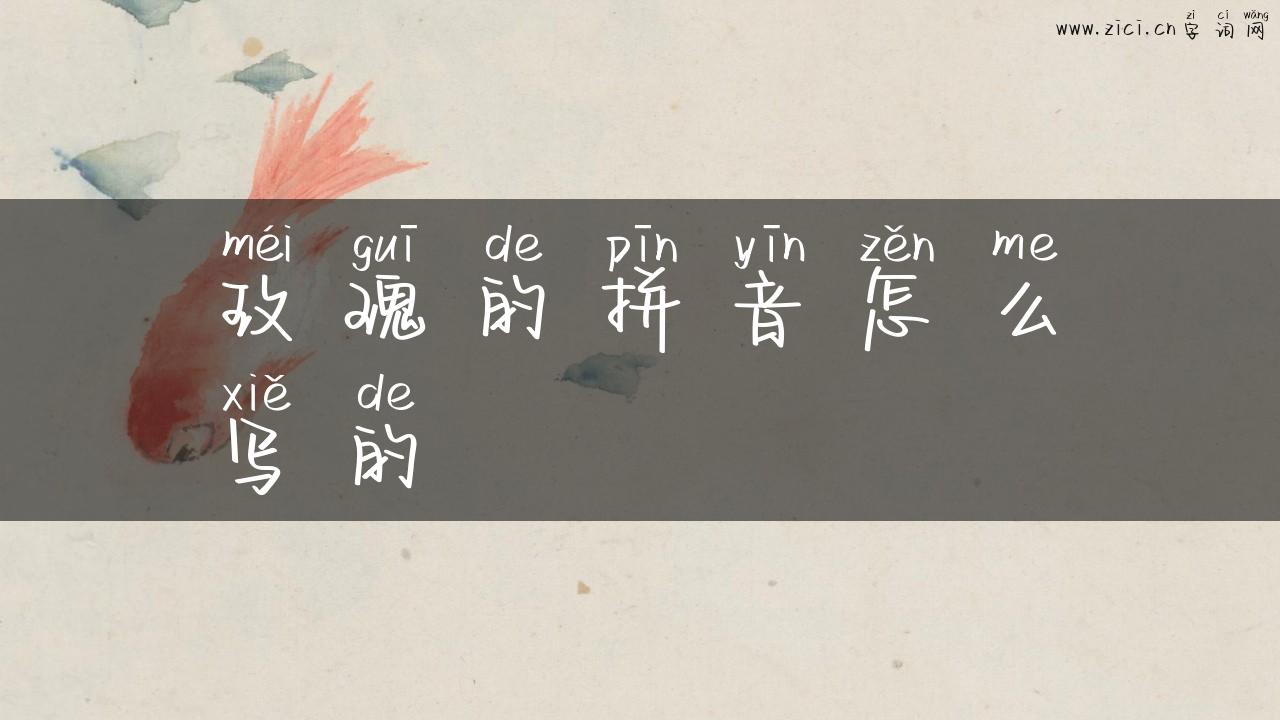 zì cí wǎng
www.zici.cn 字 词 网
méi guī de pīn yīn zěn me
玫 瑰 的 拼 音 怎 么
xiě de
写 的